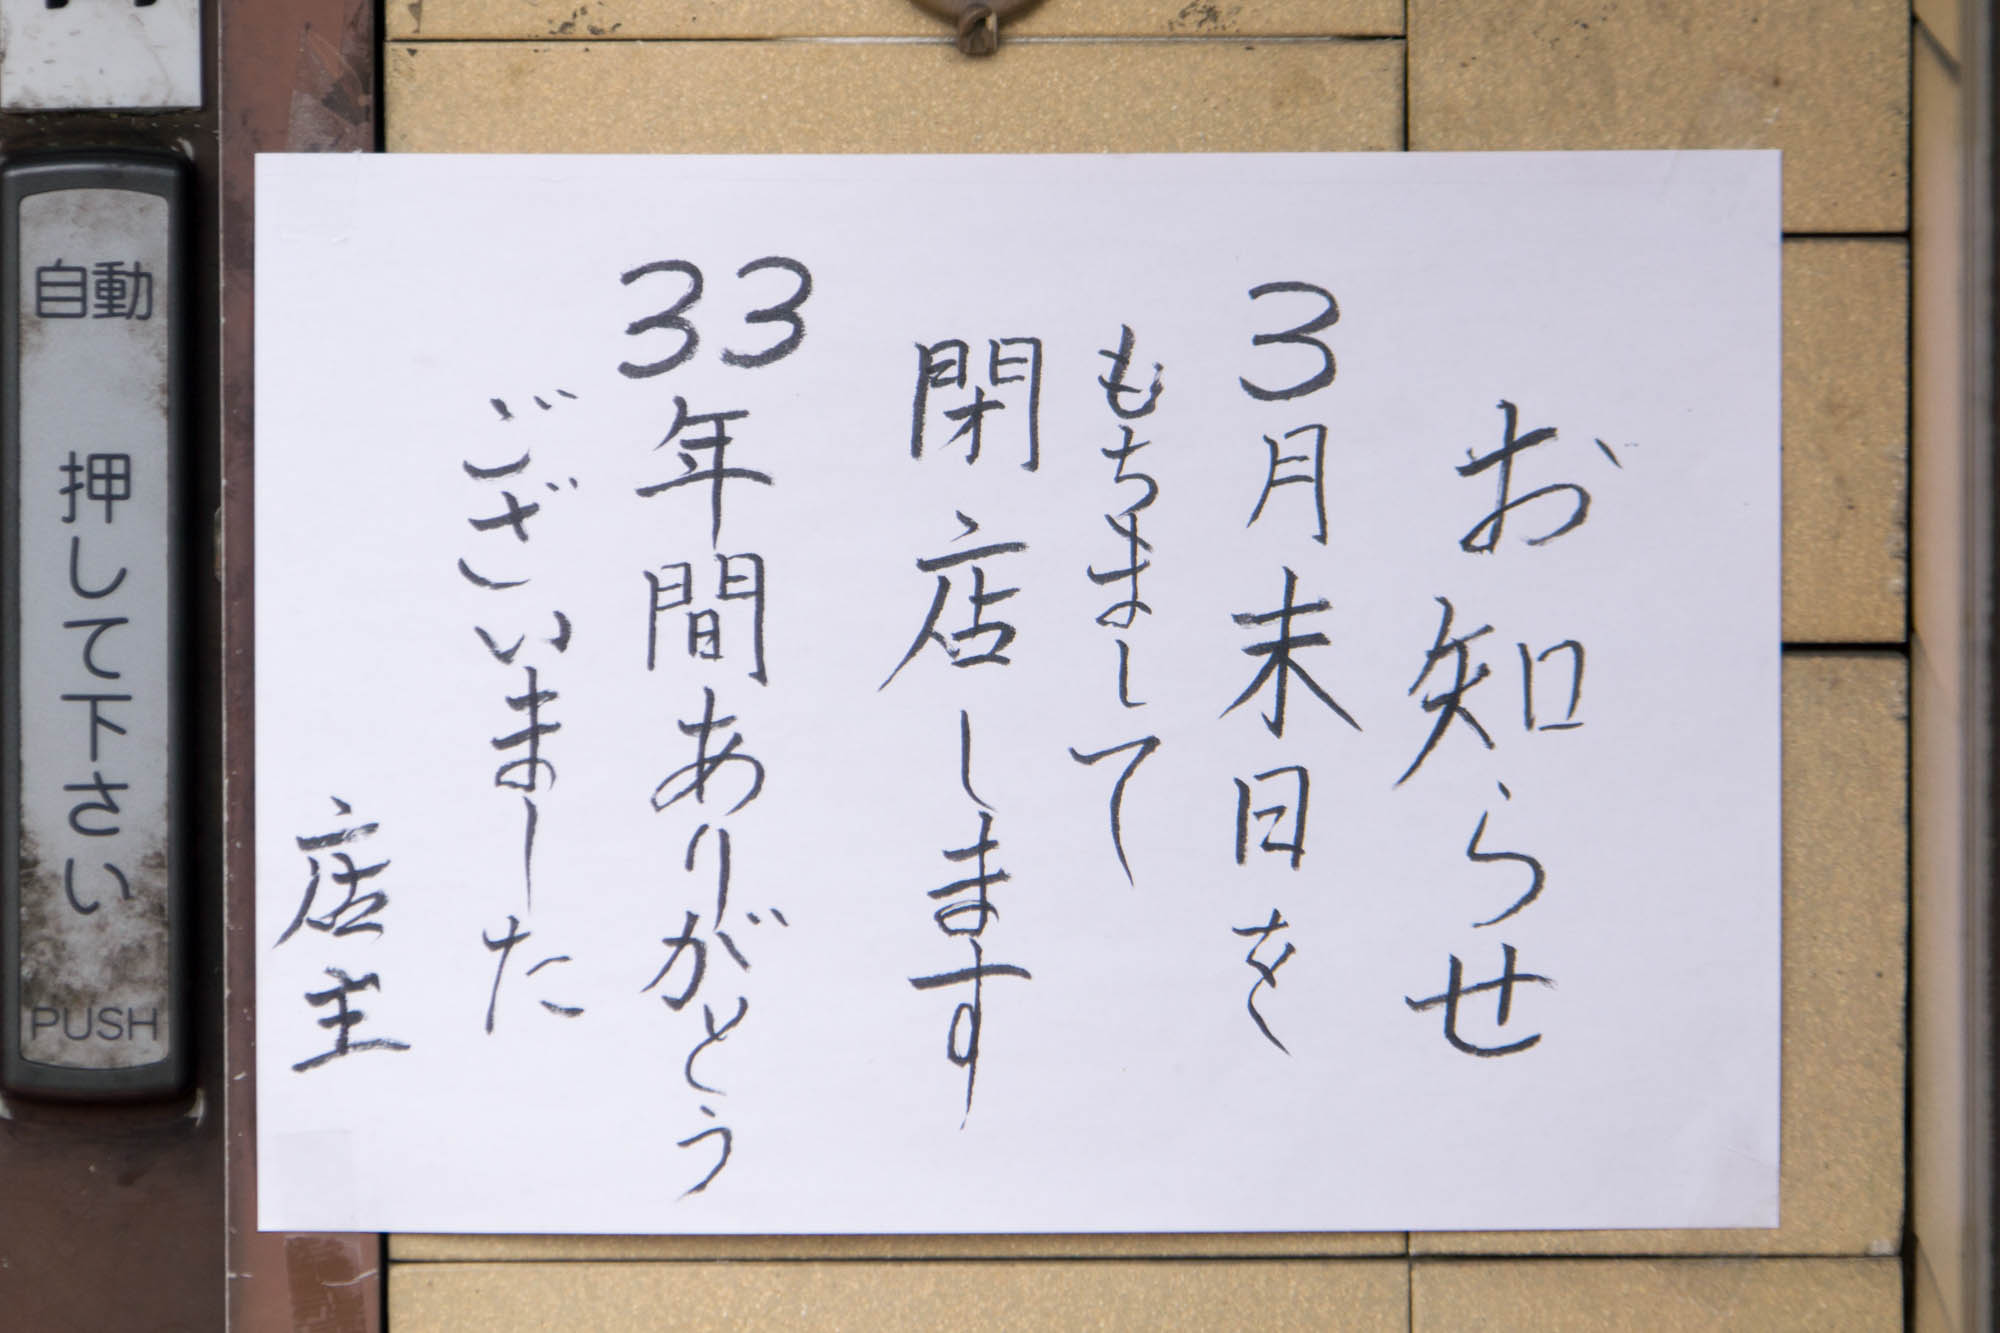 お知らせ
3月末日を
もちまして
閉店します
33年間ありがとう
ございました
店主
自動
押して下さい
PUSH